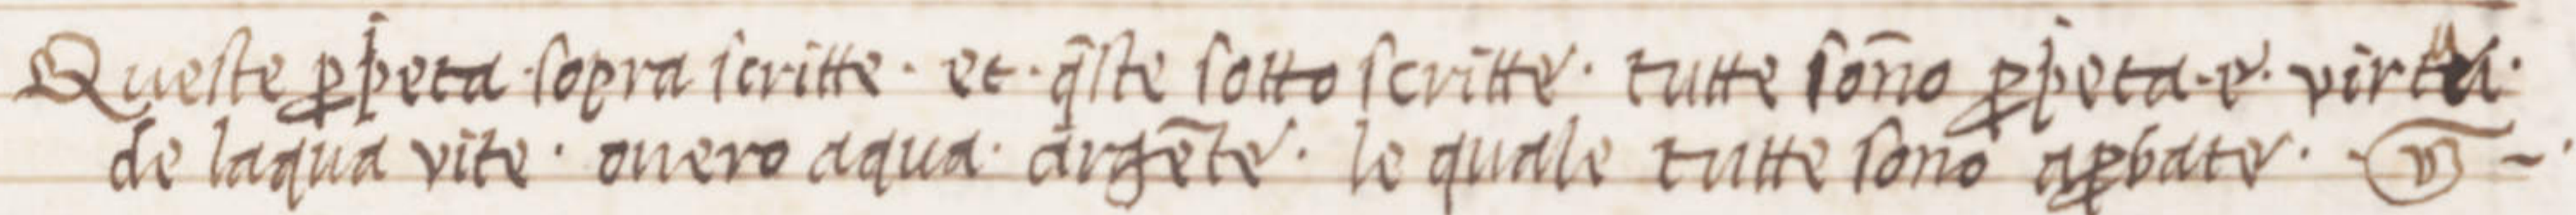 Queste ꝓp̄eta · sopra scritte · et · q̄ste sotto scritte · tutte son̄o ꝓp̄eta · e · virtu ·
de laqua vite · ouero aqua · argēte · le quale tutte sono aꝓbate · v ~ ·